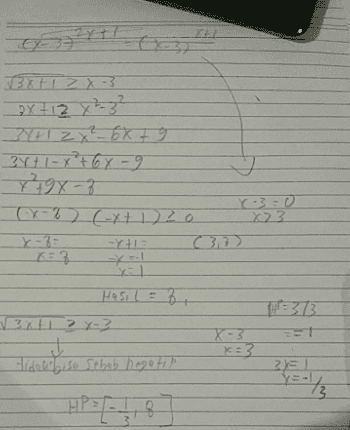 (x-3)^2x+1 = (x-3)^x+1
√3x+1 ≥ x-3
3x+1 ≥ x²-3²
3x+1 ≥ x²-6x+9
3x+1-x²+6x-9
x²+9x-8
(x-8)(-x+1) ≥ 0
x-3=0
x>3
x-8=
x=8
-x+1=
-x=-1
x=1
(3,8)
Hasil = 8,
√3x+1 ≥ x-3
tidak bisa sebab negatif
x-3
x=3
HP=3/3
==1
3x=1
x=-1/3
HP=[-1/3, 8]